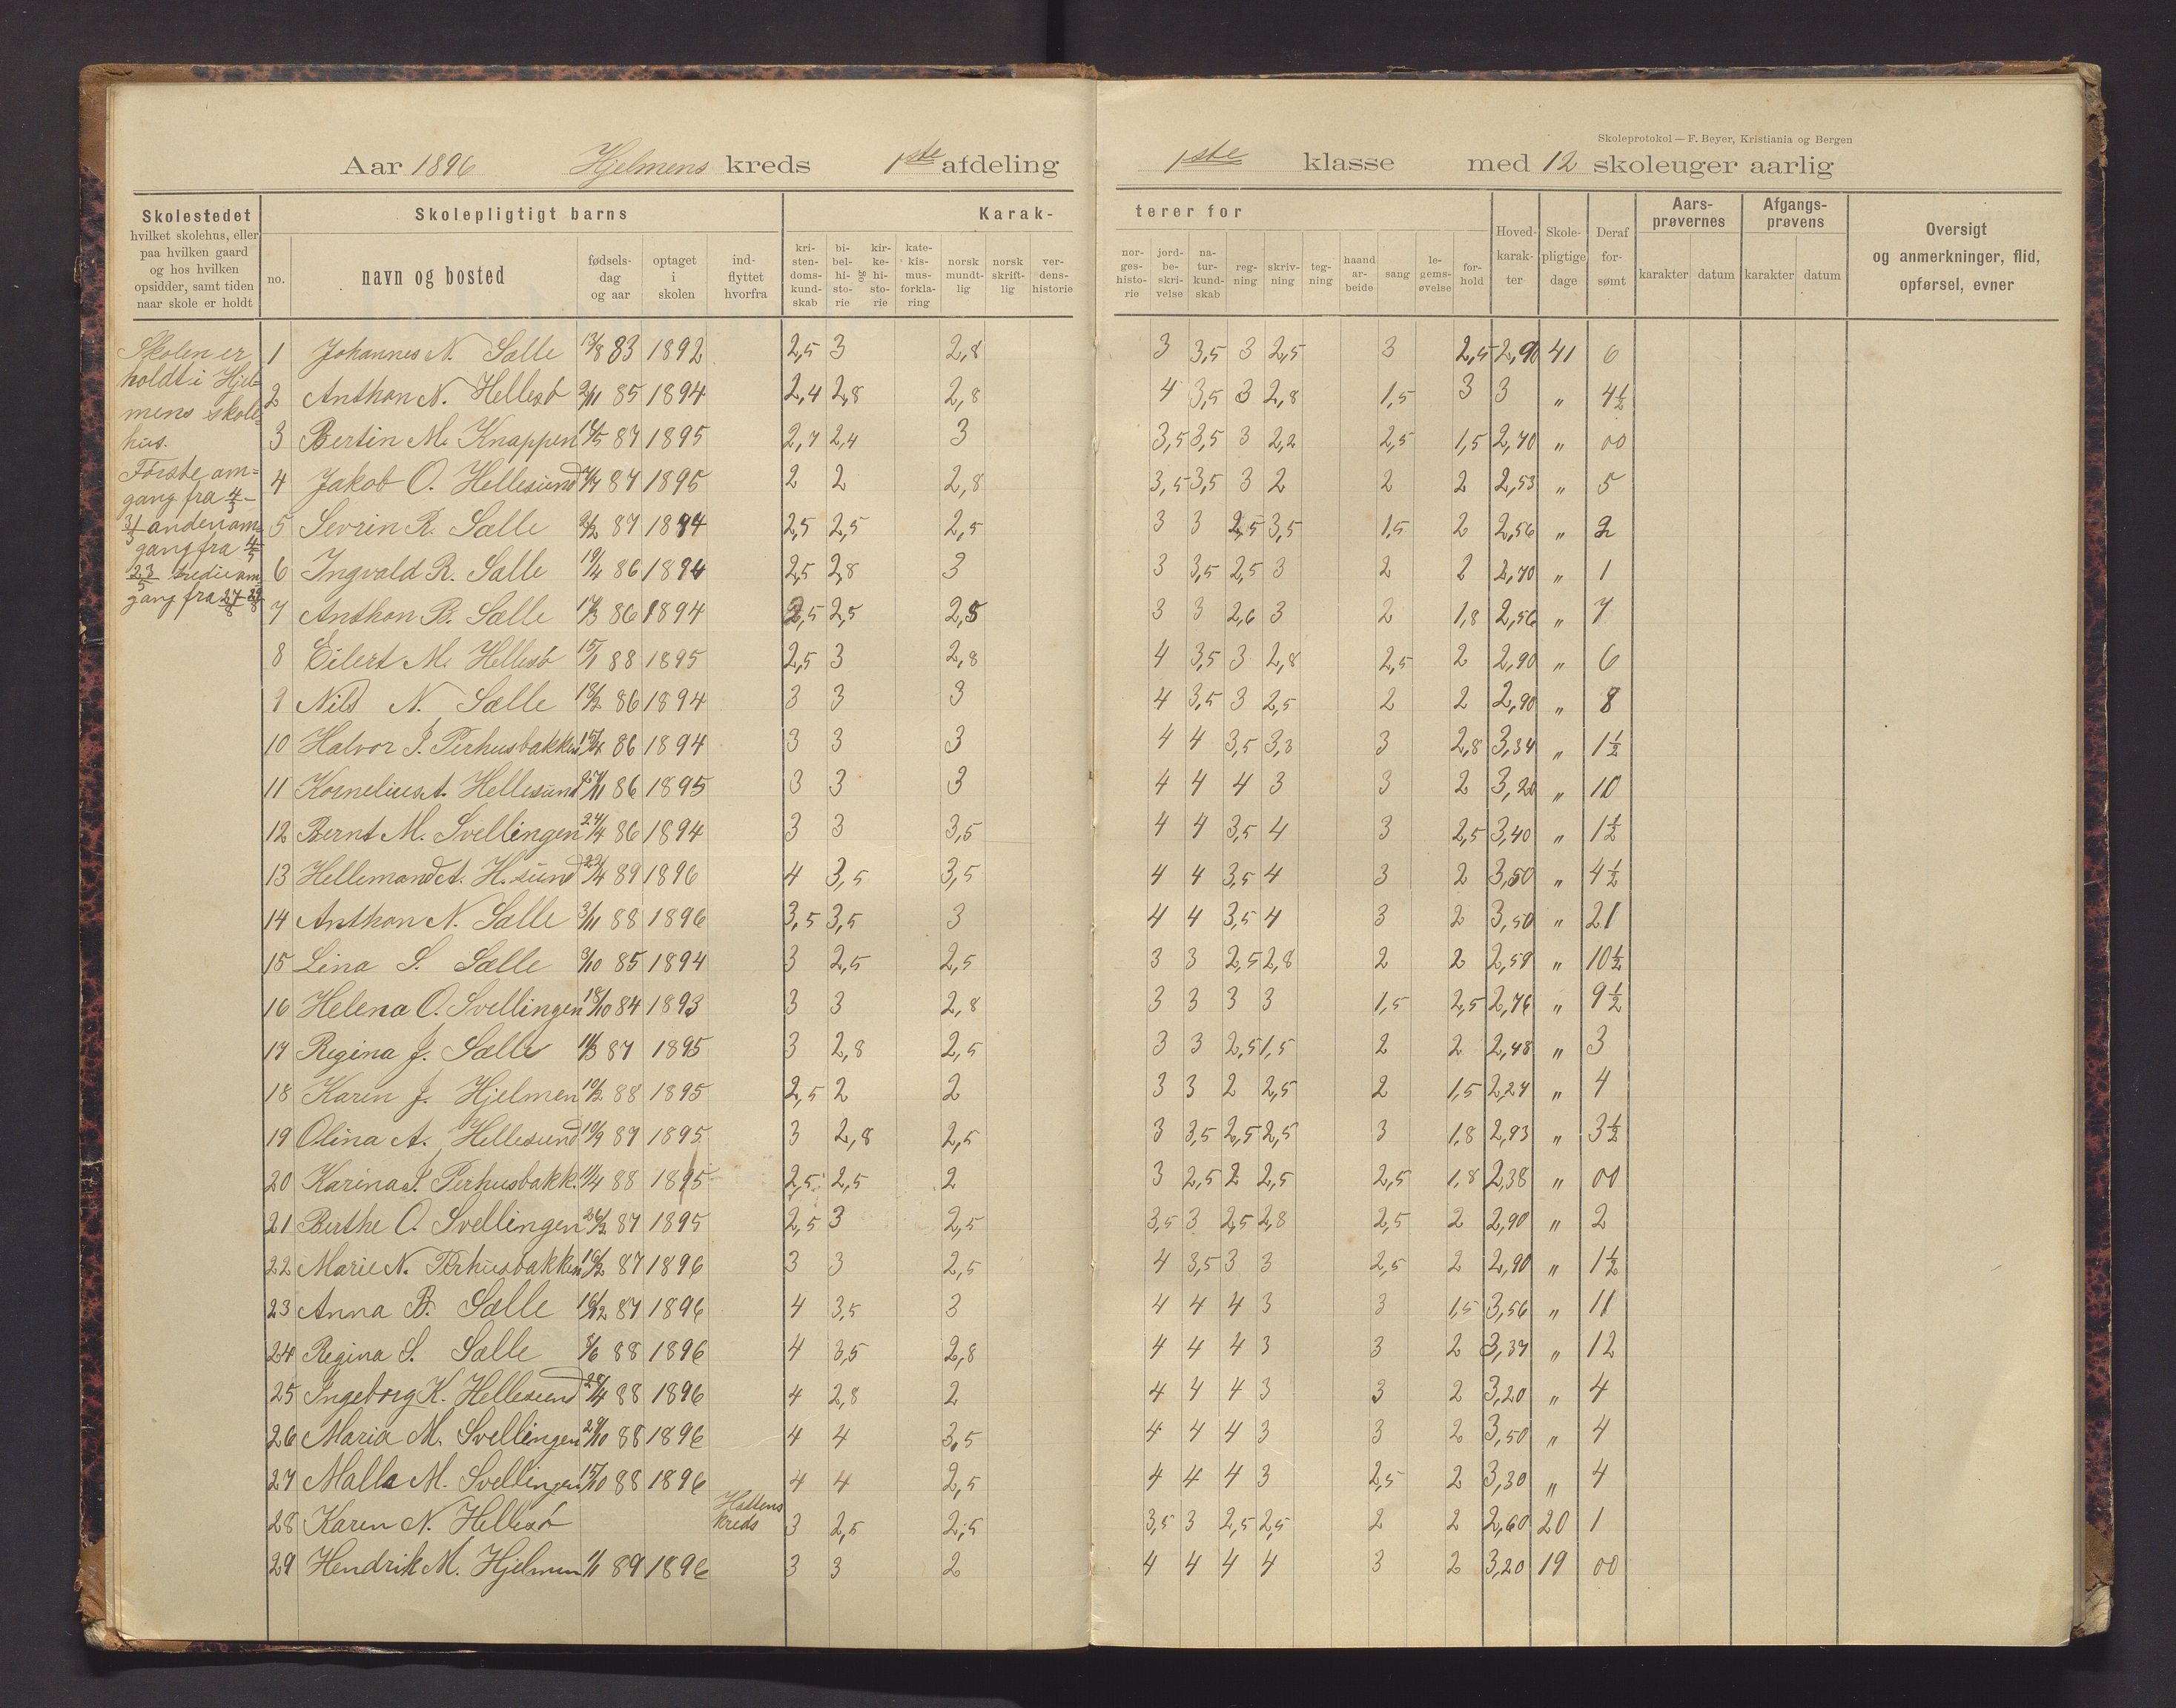 Skoleprotokol — F. Beyer, Kristiania og Bergen
Aar 1896 Hjelmens kreds 1ste afdeling 1ste klasse med 12 skoleuger aarlig
Skolestedet
hvilket skolehus, eller
paa hvilken gaard
og hos hvilken
opsidder, samt tiden
naar skole er holdt
Skolepligtigt barns
no.
navn og bosted
fødsels-
dag
og aar
optaget
i
skolen
ind-
flyttet
hvorfra
Karak-
kri-
sten-
doms-
kund-
skab
bi-
bel-
hi-
sto-
rie
og
kir-
ke-
hi-
sto-
rie
kate-
kis-
mus-
forkla-
ring
norsk
mundt-
lig
norsk
skrift-
lig
ver-
dens-
historie
terer for
nor-
ges-
histo-
rie
jord-
be-
skri-
velse
na-
tur-
kund-
skab
reg-
ning
skriv-
ning
teg-
ning
haand
ar-
beide
sang
le-
gems-
øvelse
for-
hold
Hoved-
karak-
ter
Skole-
pligtige
dage
Deraf
for-
sømt
Aars-
prøvernes
karakter datum
Afgangs-
prøvens
karakter datum
Oversigt
og anmerkninger, flid,
opførsel, evner
Skolen er
holdt i Hjel=
mens skole=
hus.
Første om=
gang fra 4/3 –
31/3 anden om=
gang fra 4/5
23/5 tredie om=
gang fra 27/8 29/8
1 Johannes N. Sælle 13/8 83 1892 2,5 3 2,8 3 3,5 3 2,5 3 2,5 2,90 41 6
2 Anthon N. Hellesö 2/11 85 1894 2,4 2,8 2,8 4 3,5 3 2,8 1,5 3 3 " 4½
3 Bertin M. Knappen 14/5 87 1895 2,7 2,4 3 3,5 3,5 3 2,2 2,5 1,5 2,70 " 00
4 Jakob O. Hellesund 87 1895 2 2 2,8 3,5 3,5 3 2 2 2 2,53 " 5
5 Sevrin R. Sælle 2/2 87 1894 2,5 2,5 2,5 3 3 2,5 3,5 1,5 2 2,56 " 2
6 Ingvald R. Sælle 19/4 86 1894 2,5 2,8 3 3 3,5 2,5 3 2 2 2,70 " 1
7 Anthon B. Sælle 17/3 86 1894 2,5 2,5 2,5 3 3 2,6 3 2 1,8 2,56 " 7
8 Eilert M. Hellesö 15/1 88 1895 2,5 3 2,8 4 3,5 3 2,8 2,5 2 2,90 " 6
9 Nils N. Sælle 18/2 86 1894 3 3 3 4 3,5 3 2,5 2 2 2,90 " 8
10 Halvor J. Perhusbakken 15/4 86 1894 3 3 3 4 4 3,5 3,3 3 2,8 3,34 " 1½
11 Kornelius A. Hellesund 27/11 86 1895 3 3 3 4 4 4 3 3 2 3,20 " 10
12 Bernt M. Svellingen 24/4 86 1894 3 3 3,5 4 4 3,5 4 3 2,5 3,40 " 1½
13 Hellemand A. H.sund 22/4 89 1896 4 3,5 3,5 4 4 3,5 4 3 2 3,50 " 4½
14 Anthon N. Sælle 3/11 88 1896 3,5 3,5 3 4 4 3,5 4 3 2 3,50 " 21
15 Lina S. Sælle 9/10 85 1894 3 2,5 2,5 3 3 2,5 2,8 2 2 2,59 " 10½
16 Helena O. Svellingen 18/10 84 1893 3 3 2,8 3 3 3 3 1,5 2,5 2,76 " 9½
17 Regina J. Sælle 14/3 87 1895 3 2,8 2,5 3 3 2,5 1,5 2 2 2,48 " 3
18 Karen J. Hjelmen 10/2 88 1895 2,5 2 2 3 3 2 2,5 2 1,5 2,27 " 4
19 Olina A. Hellesund 10/9 87 1895 3 2,8 2,5 3 3,5 2,5 2,5 3 1,8 2,93 " 3½
20 Karina J. Perhusbakk. 11/4 88 1895 2,5 2,5 2 3 2,5 2 2,5 2,5 1,8 2,38 " 00
21 Berthe O. Svellingen 26/2 87 1895 2,5 3 2,5 3,5 3 2,5 2,8 2,5 2 2,90 " 2
22 Marie N. Perhusbakken 16/2 87 1896 3 3 2,5 4 3,5 3 3 2,5 2 2,90 " 1½
23 Anna B. Sælle 16/12 87 1896 4 3,5 3 4 4 4 3 3 1,5 3,56 " 11
24 Regina S. Sælle 8/6 88 1896 4 3,5 2,8 4 4 4 3 3 2 3,37 " 12
25 Ingeborg K. Hellesund 28/4 88 1896 4 2,8 2 4 4 4 3 3 2 3,20 " 4
26 Maria M. Svellingen 29/10 88 1896 4 4 3,5 4 4 4 3 3 2 3,50 " 4
27 Malla M. Svellingen 15/10 88 1896 4 4 2,5 4 4 4 3 2,5 2 3,30 " 4
28 Karen N. Hellesö Hattens kreds 3 2,5 2,5 3,5 3 2,5 2,5 2 2 2,60 20 1
29 Hendrik M. Hjelmen 1/1 89 1896 3 3 2 4 4 4 4 3 2 3,20 19 00